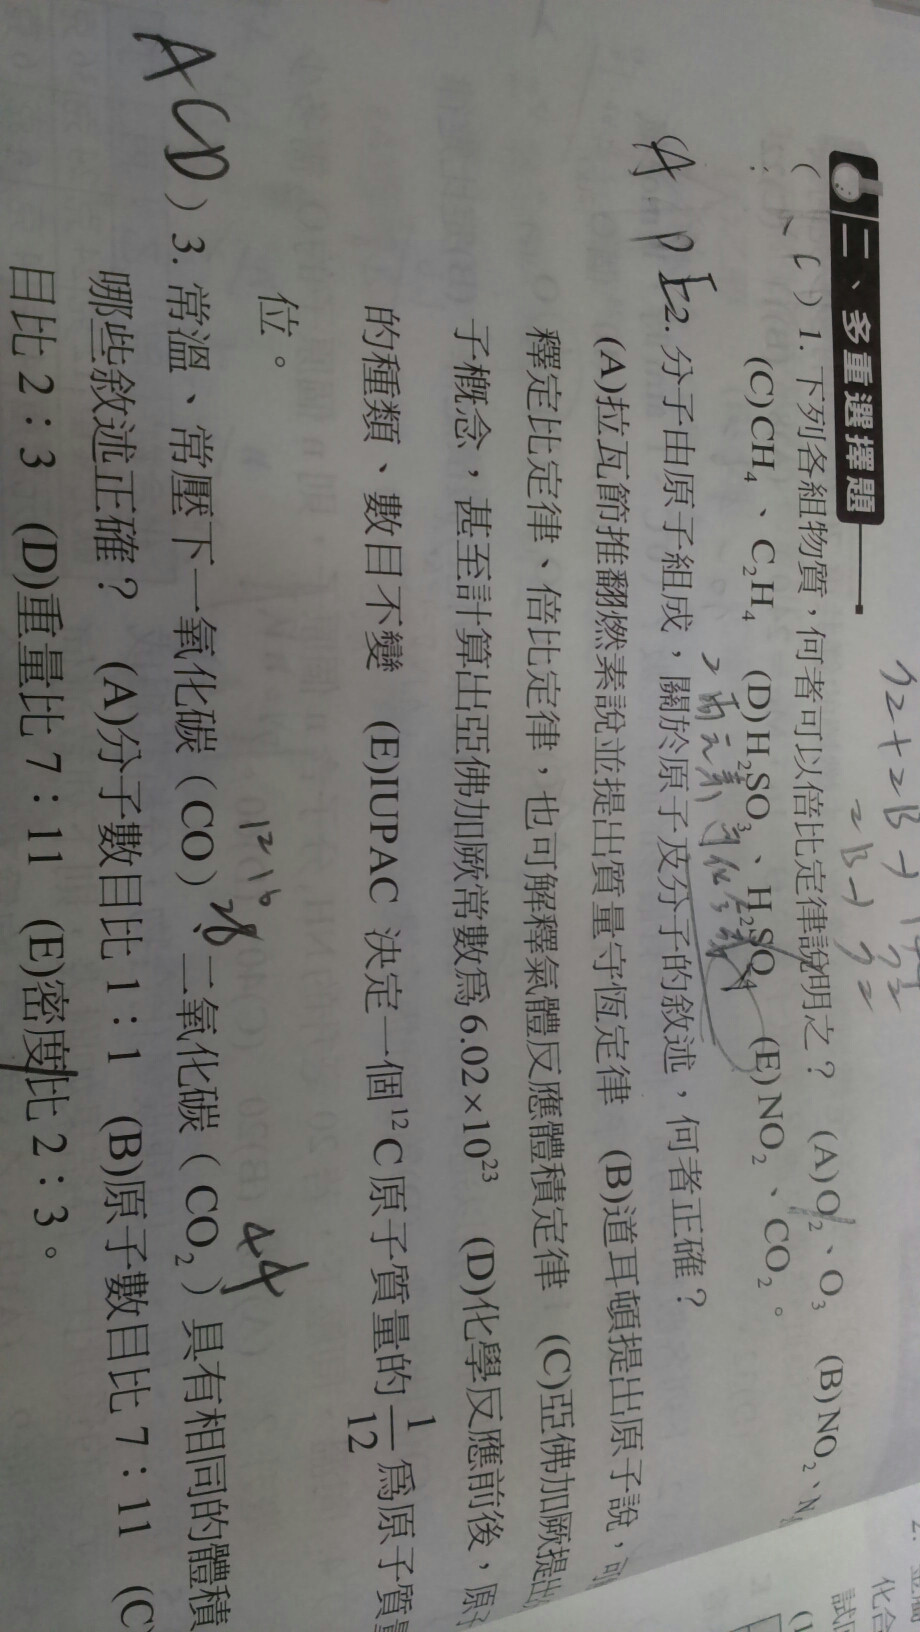 二、多重選擇題
( 、C ) 1. 下列各組物質,何者可以倍比定律說明之? (A)O₂、O₃ (B)NO₂、N
(C)CH₄、C₂H₄ (D)H₂SO₃、H₂SO₄ (E)NO₂、CO₂。
A D E 2. 分子由原子組成,關於原子及分子的敘述,何者正確?
(A)拉瓦節推翻燃素說並提出質量守恆定律 (B)道耳頓提出原子說,可
釋定比定律、倍比定律,也可解釋氣體反應體積定律 (C)亞佛加厥提出
子概念,甚至計算出亞佛加厥常數為6.02×10²³ (D)化學反應前後,原子
的種類、數目不變 (E)IUPAC 決定一個¹²C原子質量的1/12為原子質量
位。
12 16
28
44
ACD ) 3. 常溫、常壓下一氧化碳(CO)、二氧化碳(CO₂)具有相同的體積
哪些敘述正確? (A)分子數目比1:1 (B)原子數目比7:11 (C
目比2:3 (D)重量比7:11 (E)密度比2:3。
化合
試